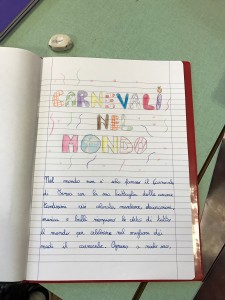 CARNEVALI
NEL
MONDO
Nel mondo non è solo famoso il Carnevale
di Ivrea con la sua battaglia delle arance.
Tantissimi maschere, decorazioni,
musica e balli riempiono le città di tutto
il mondo per celebrare nel migliore dei
modi il carnevale. Ognuno a modo suo.